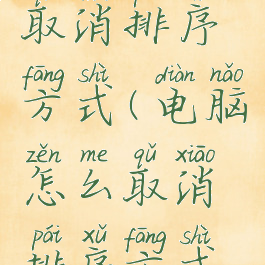 取消排序
fāng shì diàn nǎo
方式(电脑
zěn me qǔ xiāo
怎么取消
pái xǔ fāng shì
排序方式